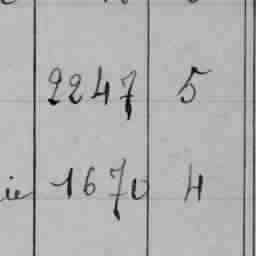 2247 5
ie 1670 4